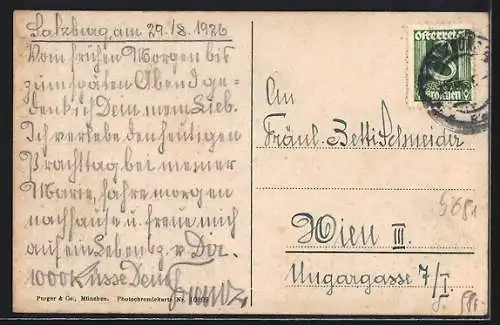 Salzburg am 29./8. 1926
Vom frühen Morgen bis
zum späten Abend ge-
denk ich Dein mein Lieb.
Ich verlebe den heutigen
Prachttag bei meiner
Marie, fahre morgen
nachhause u. freue mich
auf ein Lebensz. v. Dir.
1000 Küsse Dein Franz
Purger & Co., München. Photochromiekarte Nr.
Österreich
Groschen
An
Fräul. Betti Schneider
Wien III.
Ungargasse 7/I.